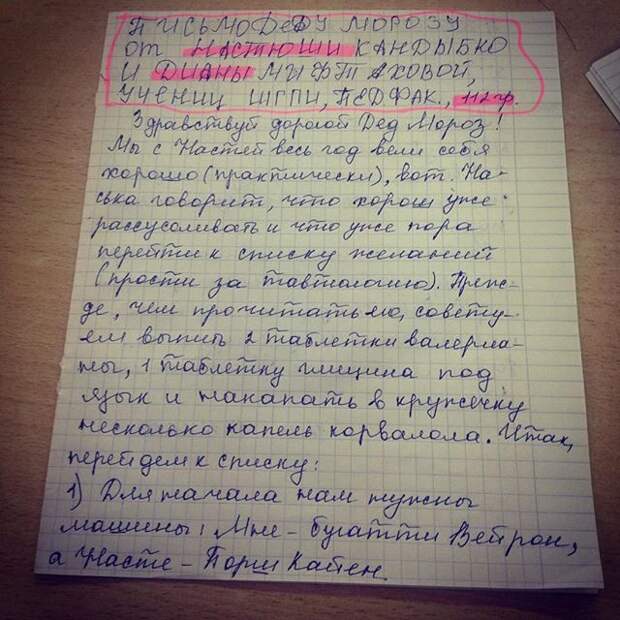 ПИСЬМО ДеДУ МОРОЗУ
от НАСТЮШИ КАНДЫБКО
И ДИАНЫ МИФТАХОВОЙ,
УЧЕНИЦ ШГПИ, ПЕДФАК., 112 гр.
Здравствуй дорогой Дед Мороз!
Мы с Настей весь год вели себя
хорошо (практически), вот. На-
ська говорит, что хорош уже
рассусоливать и что уже пора
перейти к списку желаний
(прости за тавтологию). Преж-
де, чем прочитать его, совету-
ем выпить 2 таблетки валериа-
ны, 1 таблетку глицина под
язык и накапать в кружечку
несколько капель корвалола. Итак,
перейдем к списку:
1) Для начала нам нужны
машины: Мне - бугатти Вейрон,
а Насте - Порш Кайен.